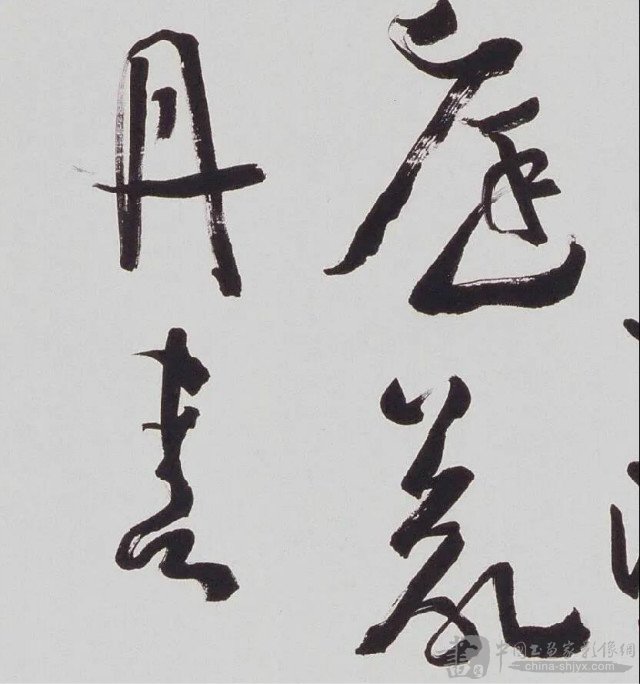 庭荒
丹
書
中国书画家影像網
china-shjyx.com